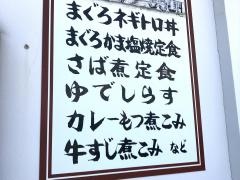 まぐろネギトロ丼
まぐろかま塩焼定食
さば煮定食
ゆでしらす
カレーもつ煮こみ
牛すじ煮こみ など